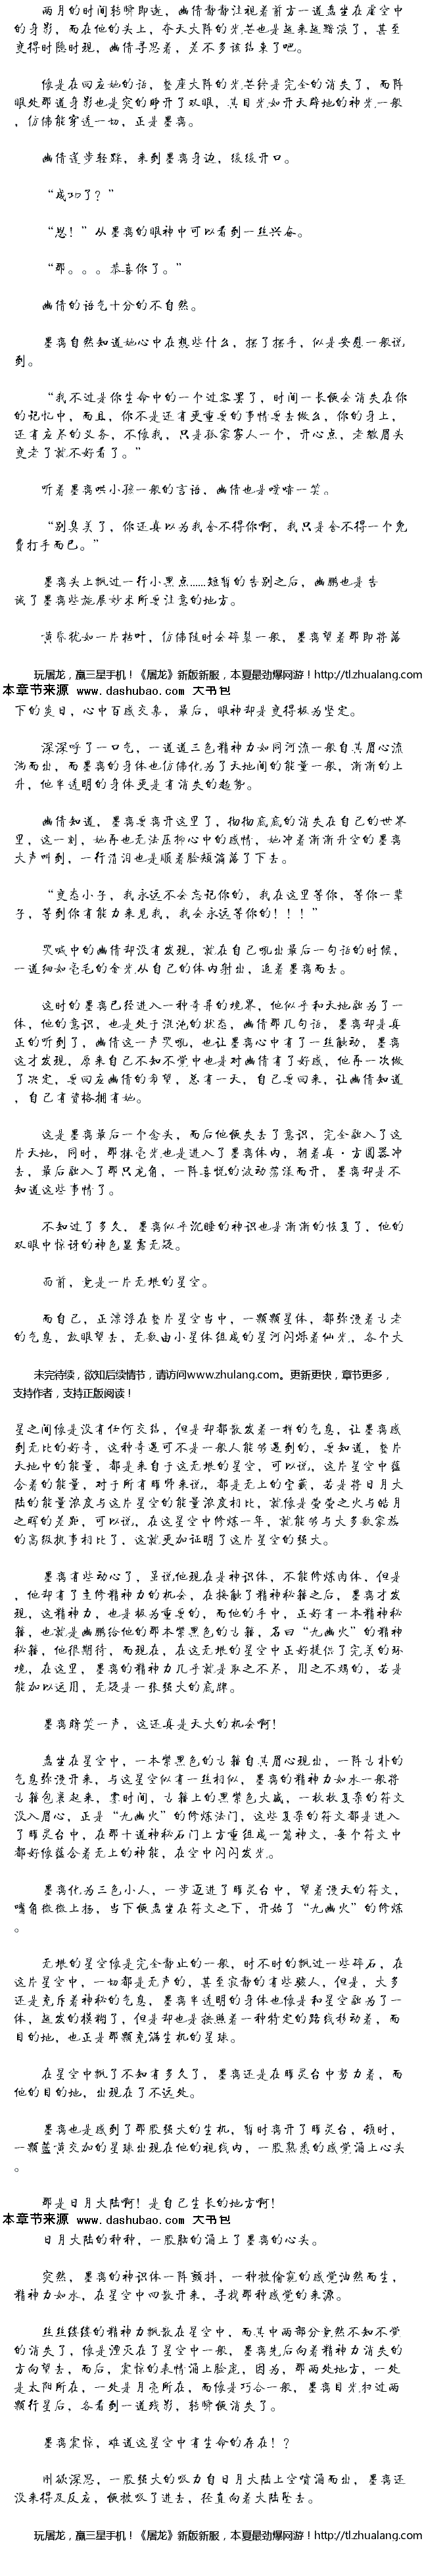 两月的时间转瞬即逝，幽倩静静注视着前方一道盘坐在虚空中
的身影，而在他的头上，夺天大阵的光芒也是越来越黯淡了，甚至
变得时隐时现，幽倩寻思着，差不多该结束了吧。
像是在回应她的话，整座大阵的光芒终是完全的消失了，而阵
眼处那道身影也是突的睁开了双眼，其目光如开天辟地的神光一般
，仿佛能穿透一切，正是墨离。
幽倩莲步轻踩，来到墨离身边，缓缓开口。
“成功了？”
“恩！”从墨离的眼神中可以看到一丝兴奋。
“那。。。恭喜你了。”
幽倩的语气十分的不自然。
墨离自然知道她心中在想些什么，摆了摆手，似是安慰一般说
到。
“我不过是你生命中的一个过客罢了，时间一长便会消失在你
的记忆中，而且，你不是还有更重要的事情要去做么，你的身上，
还有应尽的义务，不像我，只是孤家寡人一个，开心点，老皱眉头
变老了就不好看了。”
听着墨离哄小孩一般的言语，幽倩也是噗嗤一笑。
“别臭美了，你还真以为我舍不得你啊，我只是舍不得一个免
费打手而已。”
墨离头上飘过一行小黑点……短暂的告别之后，幽鹏也是告
诫了墨离些施展妙术所要注意的地方。
黄昏犹如一片枯叶，仿佛随时会碎裂一般，墨离望着那即将落
玩屠龙，赢三星手机！《屠龙》新版新服，本夏最劲爆网游！http://tl.zhualang.com
本章节来源 www.dashubao.com 大书包
下的炎日，心中百感交集，最后，眼神却是变得极为坚定。
深深呼了一口气，一道道三色精神力如同河流一般自其眉心流
淌而出，而墨离的身体也仿佛化为了天地间的能量一般，渐渐的上
升，他半透明的身体更是有消失的趋势。
幽倩知道，墨离要离开这里了，彻彻底底的消失在自己的世界
里，这一刻，她再也无法压抑心中的感情，她冲着渐渐升空的墨离
大声叫到，一行清泪也是顺着脸颊滴落了下去。
“变态小子，我永远不会忘记你的，我在这里等你，等你一辈
子，等到你有能力来见我，我会永远等你的！！！”
哭喊中的幽倩却没有发现，就在自己吼出最后一句话的时候，
一道细如毫毛的金光从自己的体内射出，追着墨离而去。
这时的墨离已经进入一种奇异的境界，他似乎和天地融为了一
体，他的意识，也是处于混沌的状态，幽倩那几句话，墨离却是真
正的听到了，幽倩这一声哭吼，也让墨离心中有了一丝触动，墨离
这才发现，原来自己不知不觉中也是对幽倩有了好感，他再一次做
了决定，要回应幽倩的希望，总有一天，自己要回来，让幽倩知道
，自己有资格拥有她。
这是墨离最后一个念头，而后他便失去了意识，完全融入了这
片天地，同时，那抹毫光也是进入了墨离体内，朝着真·方圆器冲
去，最后融入了那只龙角，一阵喜悦的波动荡漾而开，墨离却是不
知道这些事情了。
不知过了多久，墨离似乎沉睡的神识也是渐渐的恢复了，他的
双眼中惊讶的神色显露无疑。
面前，竟是一片无垠的星空。
而自己，正漂浮在整片星空当中，一颗颗星体，都弥漫着古老
的气息，放眼望去，无数由小星体组成的星河闪烁着仙光，各个大
未完待续，欲知后续情节，请访问www.zhulang.com。更新更快，章节更多，
支持作者，支持正版阅读！
星之间像是没有任何交结，但是却都散发着一样的气息，让墨离感
到无比的好奇，这种奇遇可不是一般人能够遇到的，要知道，整片
天地中的能量，都是来自于这无垠的星空，可以说，这片星空中蕴
含着的能量，对于所有晖师来说，都是无上的宝藏，若是将日月大
陆的能量浓度与这片星空的能量浓度相比，就像是萤萤之火与皓月
之晖的差距，可以说，在这星空中修炼一年，就能够与大多数家族
的高级执事相比了，这就更加证明了这片星空的强大。
墨离有些动心了，虽说他现在是神识体，不能修炼肉体，但是
，他却有了主修精神力的机会，在接触了精神秘籍之后，墨离才发
现，这精神力，也是极为重要的，而他的手中，正好有一本精神秘
籍，也就是幽鹏给他的那本紫黑色的古籍，名曰“九幽火”的精神
秘籍，他很期待，而现在，在这无垠的星空中正好提供了完美的环
境，在这里，墨离的精神力几乎就是取之不尽，用之不竭的，若是
能加以运用，无疑是一张强大的底牌。
墨离暗笑一声，这还真是天大的机会啊！
盘坐在星空中，一本紫黑色的古籍自其眉心现出，一阵古朴的
气息弥漫开来，与这星空似有一丝相似，墨离的精神力如水一般将
古籍包裹起来，霎时间，古籍上的黑紫色大盛，一枚枚复杂的符文
没入眉心，正是“九幽火”的修炼法门，这些复杂的符文都是进入
了晖灵台中，在那十道神秘石门上方重组成一篇神文，每个符文中
都好像蕴含着无上的神能，在空中闪闪发光。
墨离化为三色小人，一步迈进了晖灵台中，望着漫天的符文，
嘴角微微上扬，当下便盘坐在符文之下，开始了“九幽火”的修炼
。
无垠的星空像是完全静止的一般，时不时的飘过一些碎石，在
这片星空中，一切都是无声的，甚至寂静的有些骇人，但是，大多
还是充斥着神秘的气息，墨离半透明的身体也像是和星空融为了一
体，越发的模糊了，但是却也是按照着一种特定的路线移动着，而
目的地，也正是那颗充满生机的星球。
在星空中飘了不知有多久了，墨离还是在晖灵台中努力着，而
他的目的地，出现在了不远处。
墨离也是感到了那股强大的生机，暂时离开了晖灵台，顿时，
一颗蓝黄交加的星球出现在他的视线内，一股熟悉的感觉涌上心头
。
那是日月大陆啊！是自己生长的地方啊！
本章节来源 www.dashubao.com 大书包
日月大陆的种种，一股脑的涌上了墨离的心头。
突然，墨离的神识体一阵颤抖，一种被偷窥的感觉油然而生，
精神力如水，在星空中四散开来，寻找那种感觉的来源。
丝丝缕缕的精神力飘散在星空中，而其中两部分竟然不知不觉
的消失了，像是湮灭在了星空中一般，墨离先后向着精神力消失的
方向望去，而后，震惊的表情涌上脸庞，因为，那两处地方，一处
是太阳所在，一处是月亮所在，而像是巧合一般，墨离目光扫过两
颗行星后，各看到一道残影，转瞬便消失了。
墨离震惊，难道这星空中有生命的存在！？
刚欲深思，一股强大的吸力自日月大陆上空喷涌而出，墨离还
没来得及反应，便被吸了进去，径直向着大陆坠去。
玩屠龙，赢三星手机！《屠龙》新版新服，本夏最劲爆网游！http://tl.zhualang.com